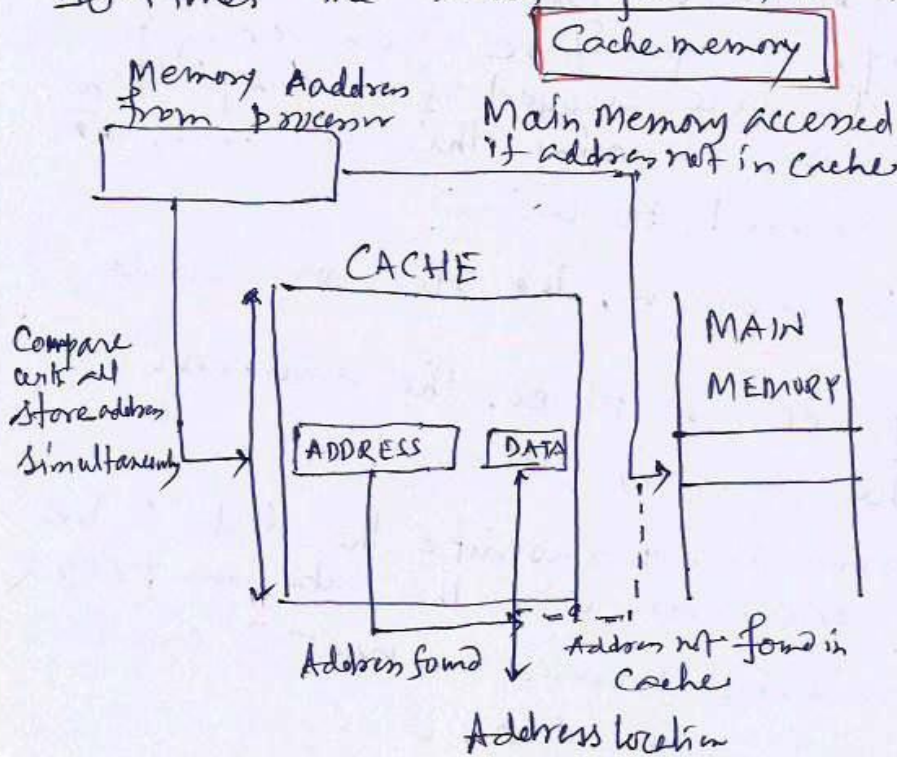 Times
Cache memory
Memory Aaddress
from processor
Main Memory accessed
if address not in Cache
CACHE
MAIN
MEMORY
Compare
with all
store address
simultaneously
ADDRESS
DATA
Address found
Address not found in
Cache
Address location